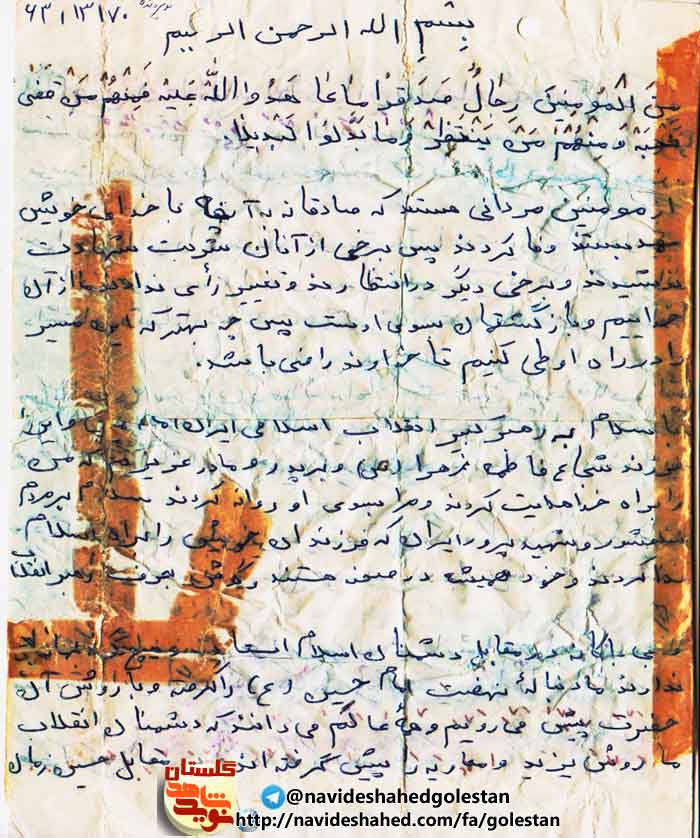 ۶۳/۱۳/۷۰
بِسْمِ الله الرحمن الرحیم
مِنَ الْمُؤمِنینَ رِجالٌ صَدَقُوا ما عاهَدُوا اللّهَ عَلَیْهِ فَمِنْهُمْ مَنْ قَضی
نَحْبَهُ وَ مِنْهُمْ مَنْ یَنْتَظِرُ وَ ما بَدَّلُوا تَبْدیلا.
از مومنین مردانی هستند که صادقانه به آنچه با خدای خویش
عهد بستند وفا کردند پس برخی از آنان شربت شهادت
نوشیدند و برخی دیگر در انتظارند و تغییر رأی ندادند ما از آن
خداییم و بازگشتمان بسوی اوست پس چه بهتر که این مسیر
را در راه او طی کنیم تا خداوند راضی باشد.
با سلام به رهبر کبیر انقلاب اسلامی ایران امام
فرزند شجاع فاطمه زهرا (س) و بر پدر و مادر عزیزم که من
را براه خدا هدایت کردند و مرا بسوی او روانه کردند سلام بر مردم
سلحشور و شهید پرور ایران که فرزندان خویش را براه اسلام
فدا کردند و خود همیشه در صحنه هستند و گوش بحرف رهبر انقلاب
در مقابل دشمنان اسلام
ندارند ما دنبالهٔ نهضت امام حسین (ع) را گرفته و با روش آن
حضرت پیش می رویم و همهٔ عالم می دانند که دشمنان انقلاب
ما روش یزید و معاویه را پیش گرفته اند مقابل حسین زمان
گلستان
شاهد
نوید
@navideshahedgolestan
http://navideshahed.com/fa/golestan